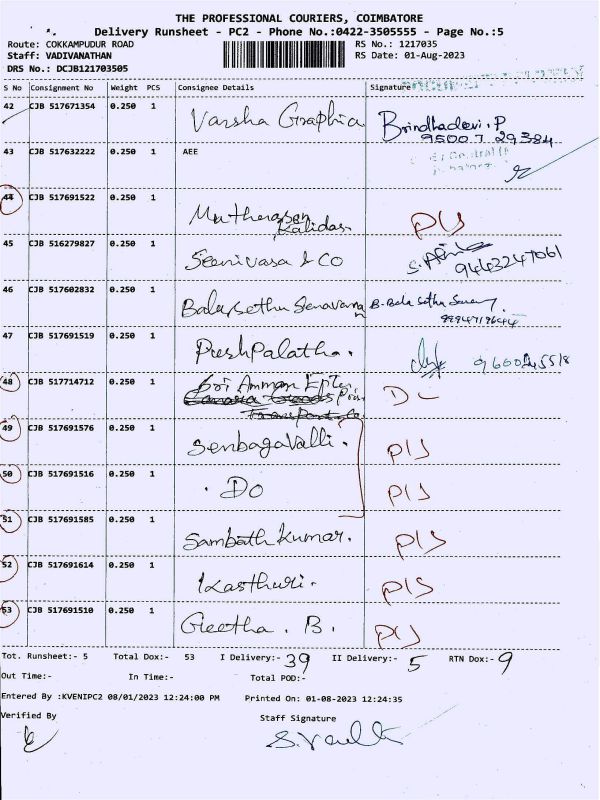 THE PROFESSIONAL COURIERS, COIMBATORE
Delivery Runsheet - PC2 - Phone No.:0422-3505555 - Page No.:5
Route: COKKAMPUDUR ROAD RS No.: 1217035
Staff: VADIVANATHAN RS Date: 01-Aug-2023
DRS No.: DCJB121703505
S No Consignment No Weight PCS Consignee Details Signature
42 CJB 517671354 0.250 1 Varsha Graphia Brindhadevi.P
95007 29384
43 CJB 517632222 0.250 1 AEE
44 CJB 517691522 0.250 1 Mutherasan Kalidas P/S
45 CJB 516279827 0.250 1 Seenivasa & Co
9443247061
46 CJB 517602832 0.250 1 Bala Sethu Senavarna B. Bala Sethu
47 CJB 517691519 0.250 1 PushPalatha.
48 CJB 517714712 0.250 1 Sri Amman DL
49 CJB 517691576 0.250 1 Senbagavalli. P/S
50 CJB 517691516 0.250 1 . Do P/S
51 CJB 517691585 0.250 1 Sambath Kumar. P/S
52 CJB 517691614 0.250 1 Kasthuri. P/S
53 CJB 517691510 0.250 1 Geetha . B. P/S
Tot. Runsheet:- 5 Total Dox:- 53 I Delivery:- 39 II Delivery:- 5 RTN Dox:- 9
Out Time:- In Time:- Total POD:-
Entered By :KVENIPC2 08/01/2023 12:24:00 PM Printed On: 01-08-2023 12:24:35
Verified By Staff Signature